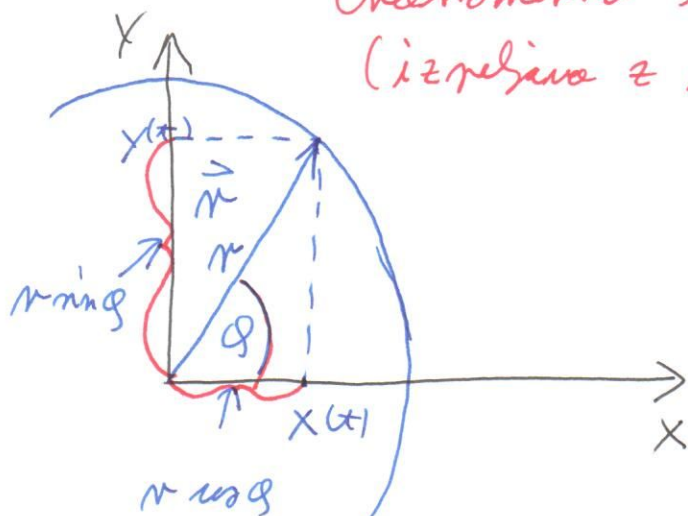 (izpeljava z
Y
y(t)
r⃗
r
r sinφ
φ
x(t)
X
r cosφ